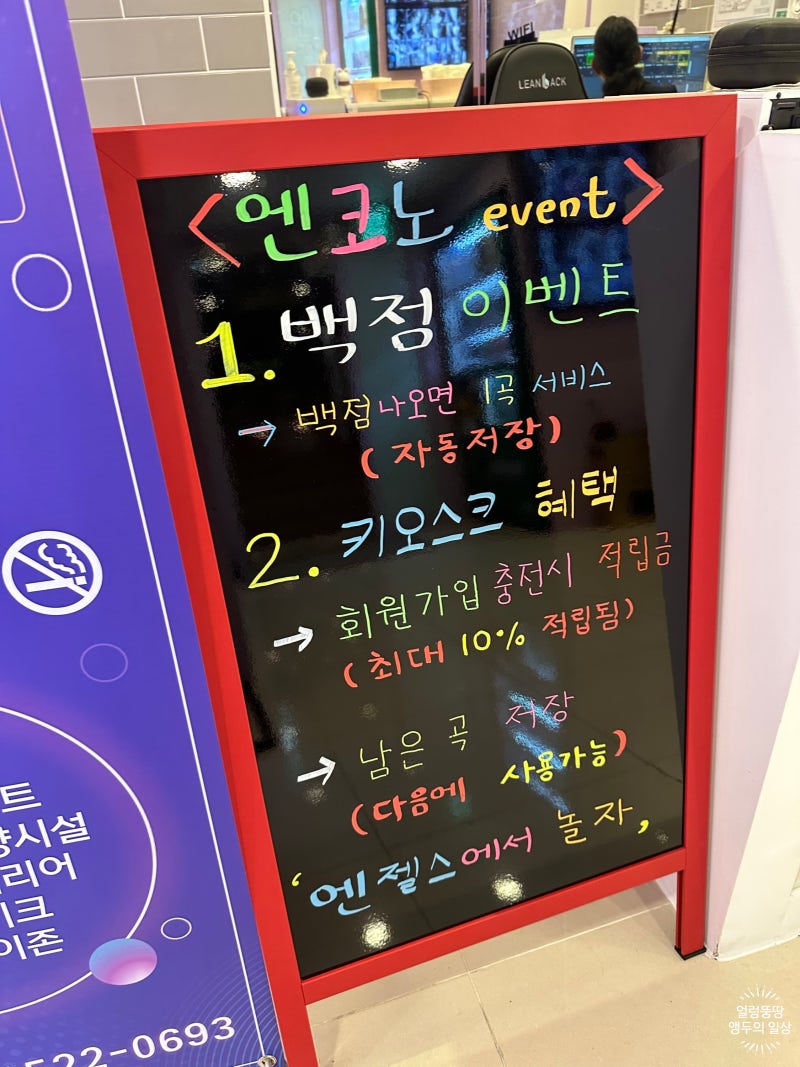 WIFI
LEANBACK
<엔코노 event>
1. 백점 이벤트
→ 백점나오면 1곡 서비스
(자동저장)
2. 키오스크 혜택
→ 회원가입 충전시 적립금
(최대 10% 적립됨)
→ 남은 곡 저장
(다음에 사용가능)
'엔젤스에서 놀자,
트
시설
리어
이크
이존
522-0693
얼렁뚱땅
앵두의 일상